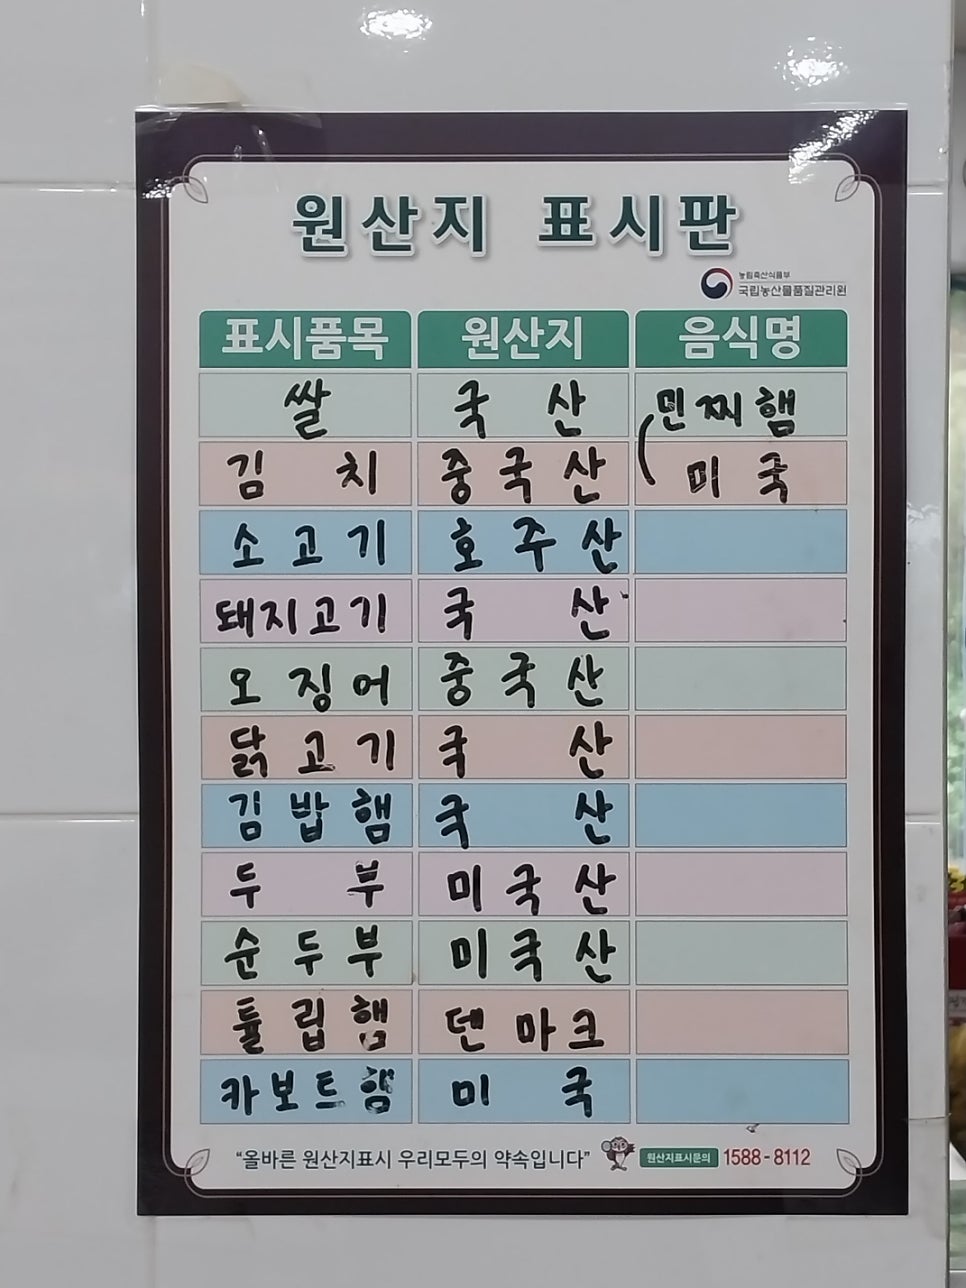 원산지 표시판
농림축산식품부
국립농산물품질관리원
표시품목 원산지 음식명
쌀 국 산 민찌햄
김 치 중국산 (미국
소고기 호주산
돼지고기 국 산
오징어 중국산
닭고기 국 산
김밥햄 국 산
두 부 미국산
순두부 미국산
툴립햄 덴마크
카보트햄 미 국
“올바른 원산지표시 우리모두의 약속입니다” 원산지표시문의 1588-8112